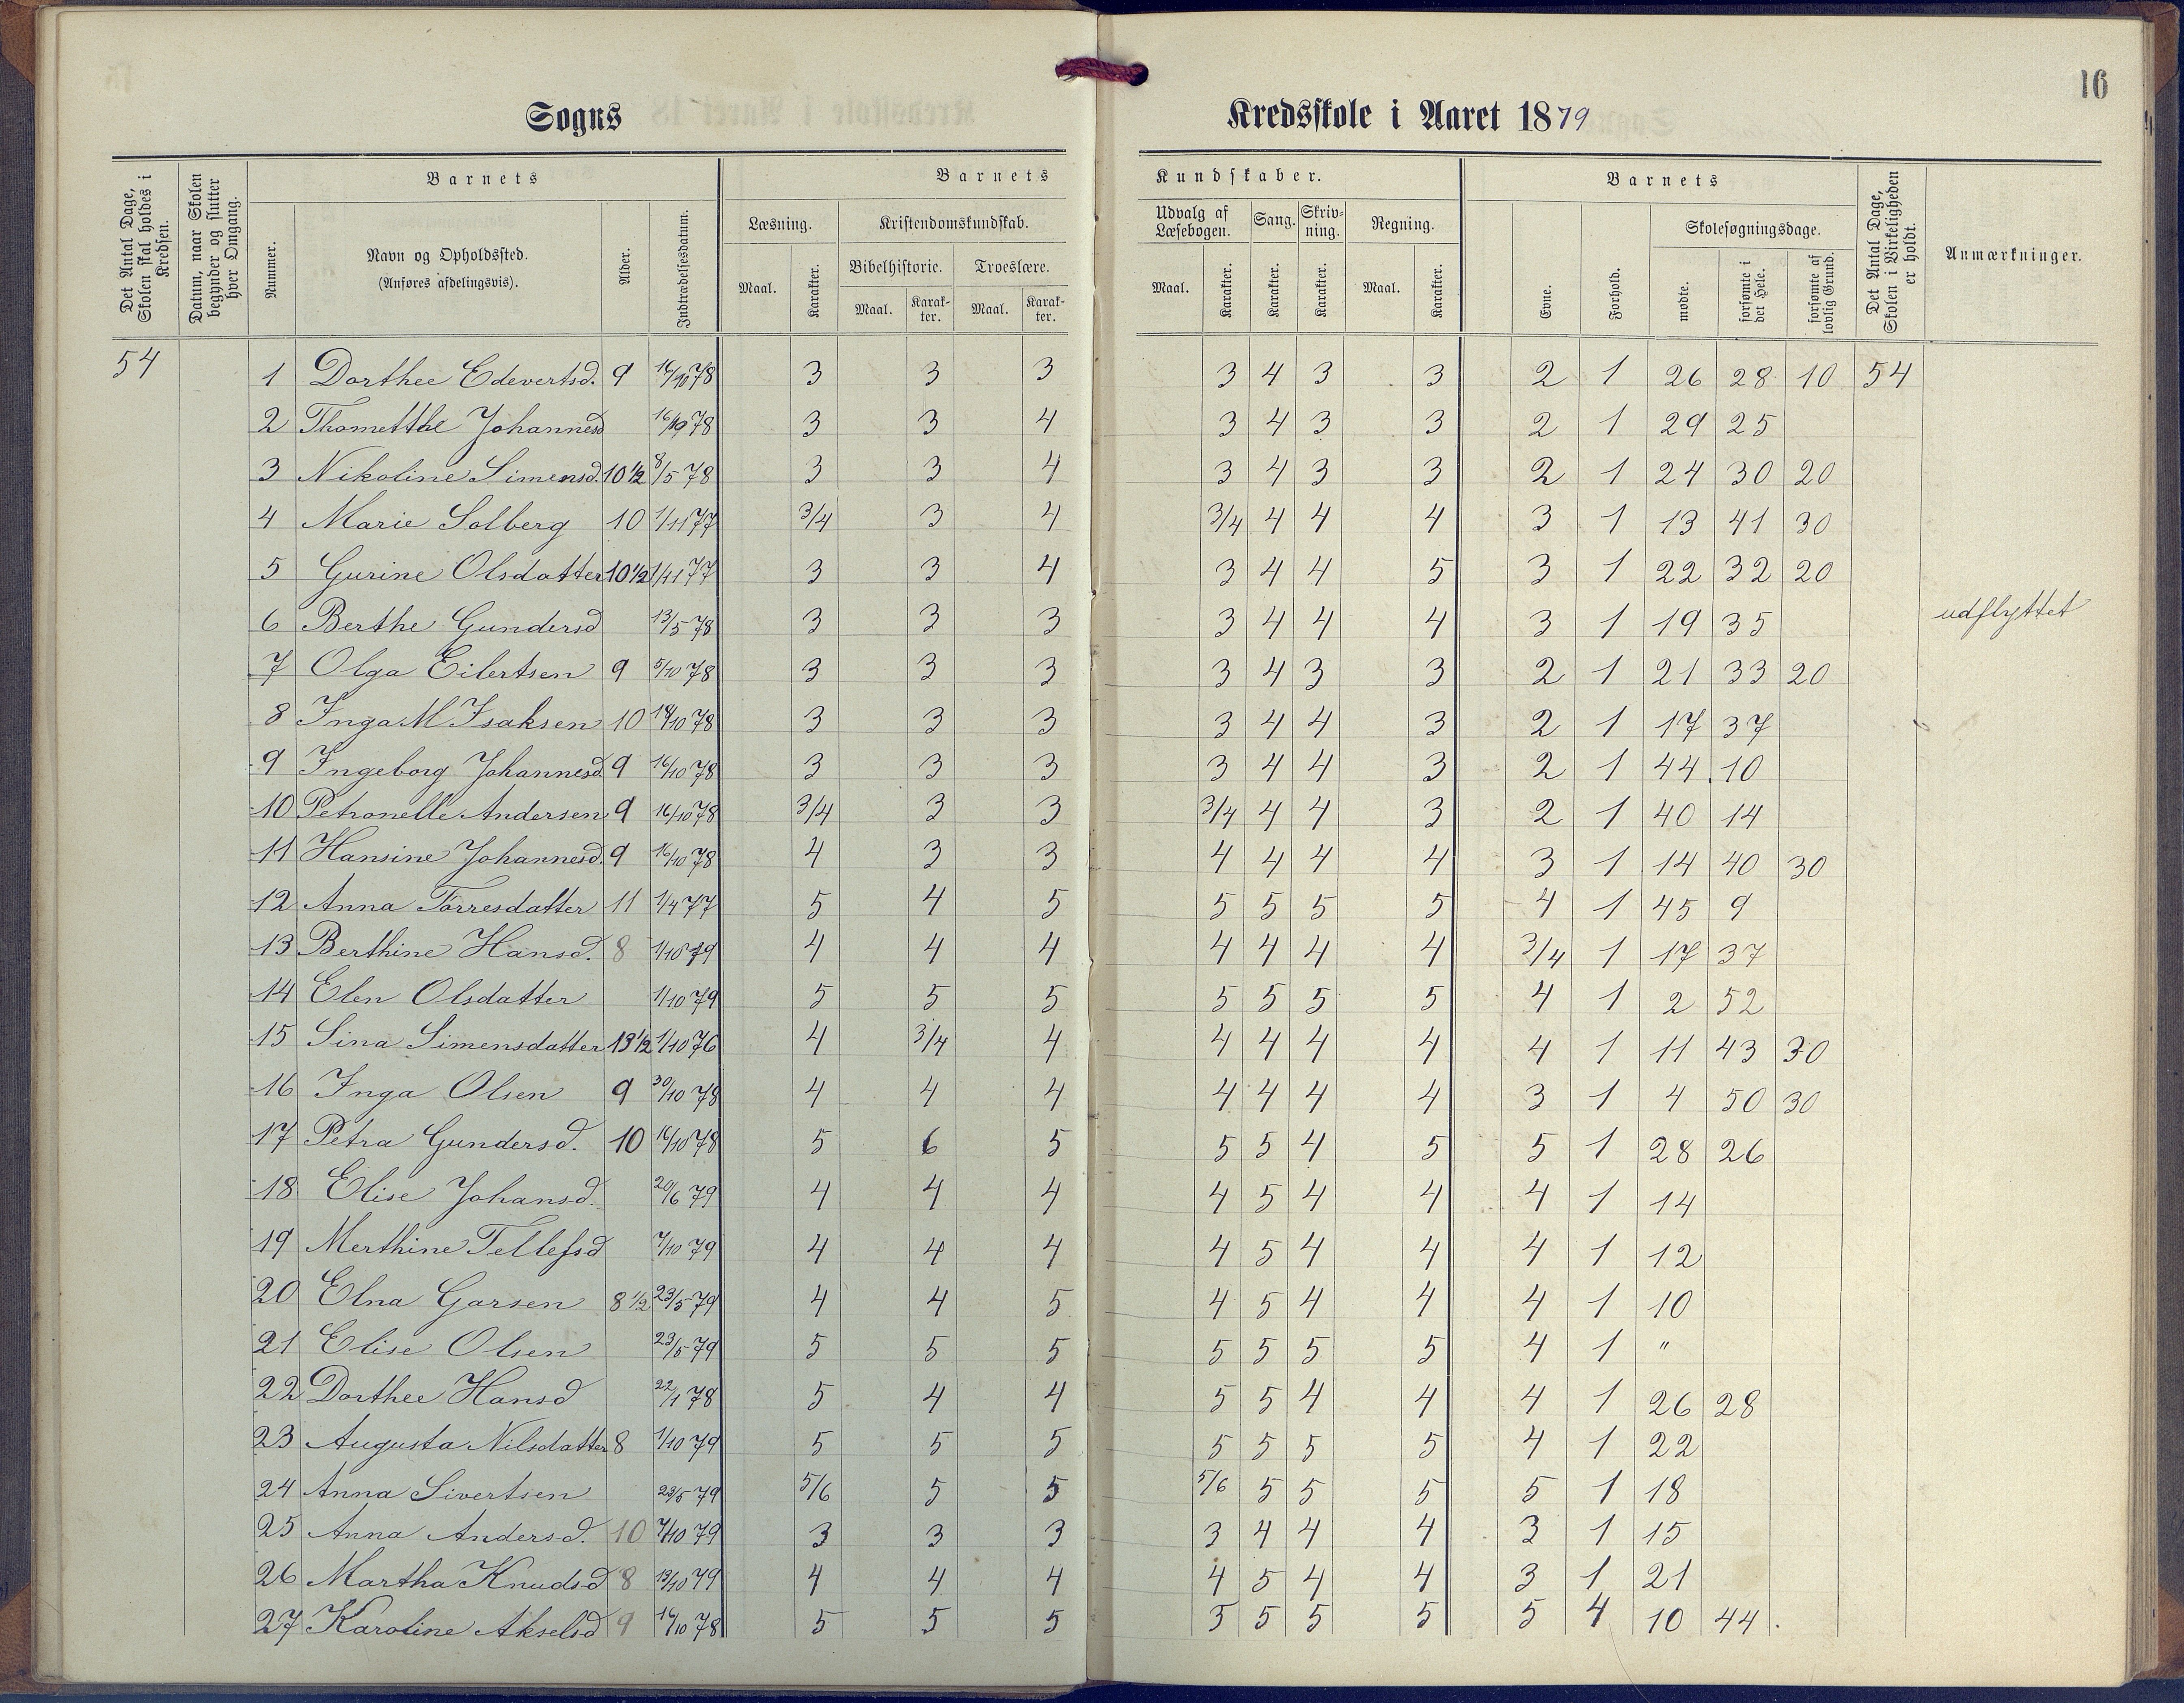 16
Sogns Kredsskole i Aaret 1879
Det Antal Dage, Skolen skal holdes i Kredsen.
Datum, naar Skolen begynder og slutter hver Omgang.
Barnets
Nummer.
Navn og Opholdssted. (Anføres afdelingsvis).
Alder.
Indtrædelsesdatum.
Barnets Kundskaber.
Læsning. Maal. Karakter.
Kristendomskundskab.
Bibelhistorie. Maal. Karakter.
Troeslære. Maal. Karakter.
Udvalg af Læsebogen. Maal. Karakter.
Sang. Karakter.
Skrivning. Karakter.
Regning. Maal. Karakter.
Barnets
Evne.
Forhold.
Skolesøgningsdage.
mødte.
forsømte i det Hele.
forsømte af lovlig Grund.
Det Antal Dage, Skolen i Virkeligheden er holdt.
Anmærkninger.
54 1 Dorthee Edevertsd. 9 16/10 78 3 3 3 3 4 3 3 2 1 26 28 10 54
2 Thometthe Johannesd 16/10 78 3 3 4 3 4 3 3 2 1 29 25
3 Nikoline Simensd. 10 1/2 8/5 78 3 3 4 3 4 3 3 2 1 24 30 20
4 Marie Solberg 10 1/11 77 3/4 3 4 3/4 4 4 4 3 1 13 41 30
5 Gurine Olsdatter 10 1/2 1/11 77 3 3 4 3 4 4 5 3 1 22 32 20
6 Berthe Gundersd 13/5 78 3 3 3 3 4 4 4 3 1 19 35 udflyttet
7 Olga Eilertsen 9 5/10 78 3 3 3 3 4 3 3 2 1 21 33 20
8 Inga M Isaksen 10 18/10 78 3 3 3 3 4 4 3 2 1 17 37
9 Ingeborg Johannesd. 9 16/10 78 3 3 3 3 4 4 3 2 1 44 10
10 Petronelle Andersen 9 16/10 78 3/4 3 3 3/4 4 4 3 2 1 40 14
11 Hansine Johannesd. 9 16/10 78 4 3 3 4 4 4 4 3 1 14 40 30
12 Anna Torresdatter 11 1/4 77 5 4 5 5 5 5 5 4 1 45 9
13 Berthine Hansd. 8 1/10 79 4 4 4 4 4 4 4 3/4 1 17 37
14 Elen Olsdatter 1/10 79 5 5 5 5 5 5 5 4 1 2 52
15 Sina Simensdatter 13 1/2 1/10 76 4 3/4 4 4 4 4 4 4 1 11 43 30
16 Inga Olsen 9 30/10 78 4 4 4 4 4 4 4 3 1 4 50 30
17 Petra Gundersd. 10 16/10 78 5 6 5 5 5 4 5 5 1 28 26
18 Elise Johansd. 20/6 79 4 4 4 4 5 4 4 4 1 14
19 Merthine Tellefsd 7/10 79 4 4 4 4 5 4 4 4 1 12
20 Elna Garsen 8 1/2 23/5 79 4 4 5 4 5 4 4 4 1 10
21 Elise Olsen 23/5 79 5 5 5 5 5 5 5 4 1 "
22 Dorthee Hansd 22/1 78 5 4 4 5 5 4 4 4 1 26 28
23 Augusta Nilsdatter 8 1/10 79 5 5 5 5 5 5 5 4 1 22
24 Anna Sivertsen 23/5 79 5/6 5 5 5/6 5 5 5 5 1 18
25 Anna Andersd. 10 7/10 79 3 3 3 3 4 4 4 3 1 15
26 Martha Knudsd 8 13/10 79 4 4 4 4 5 4 4 3 1 21
27 Karoline Akselsd 9 16/10 78 5 5 5 5 5 5 5 5 4 10 44